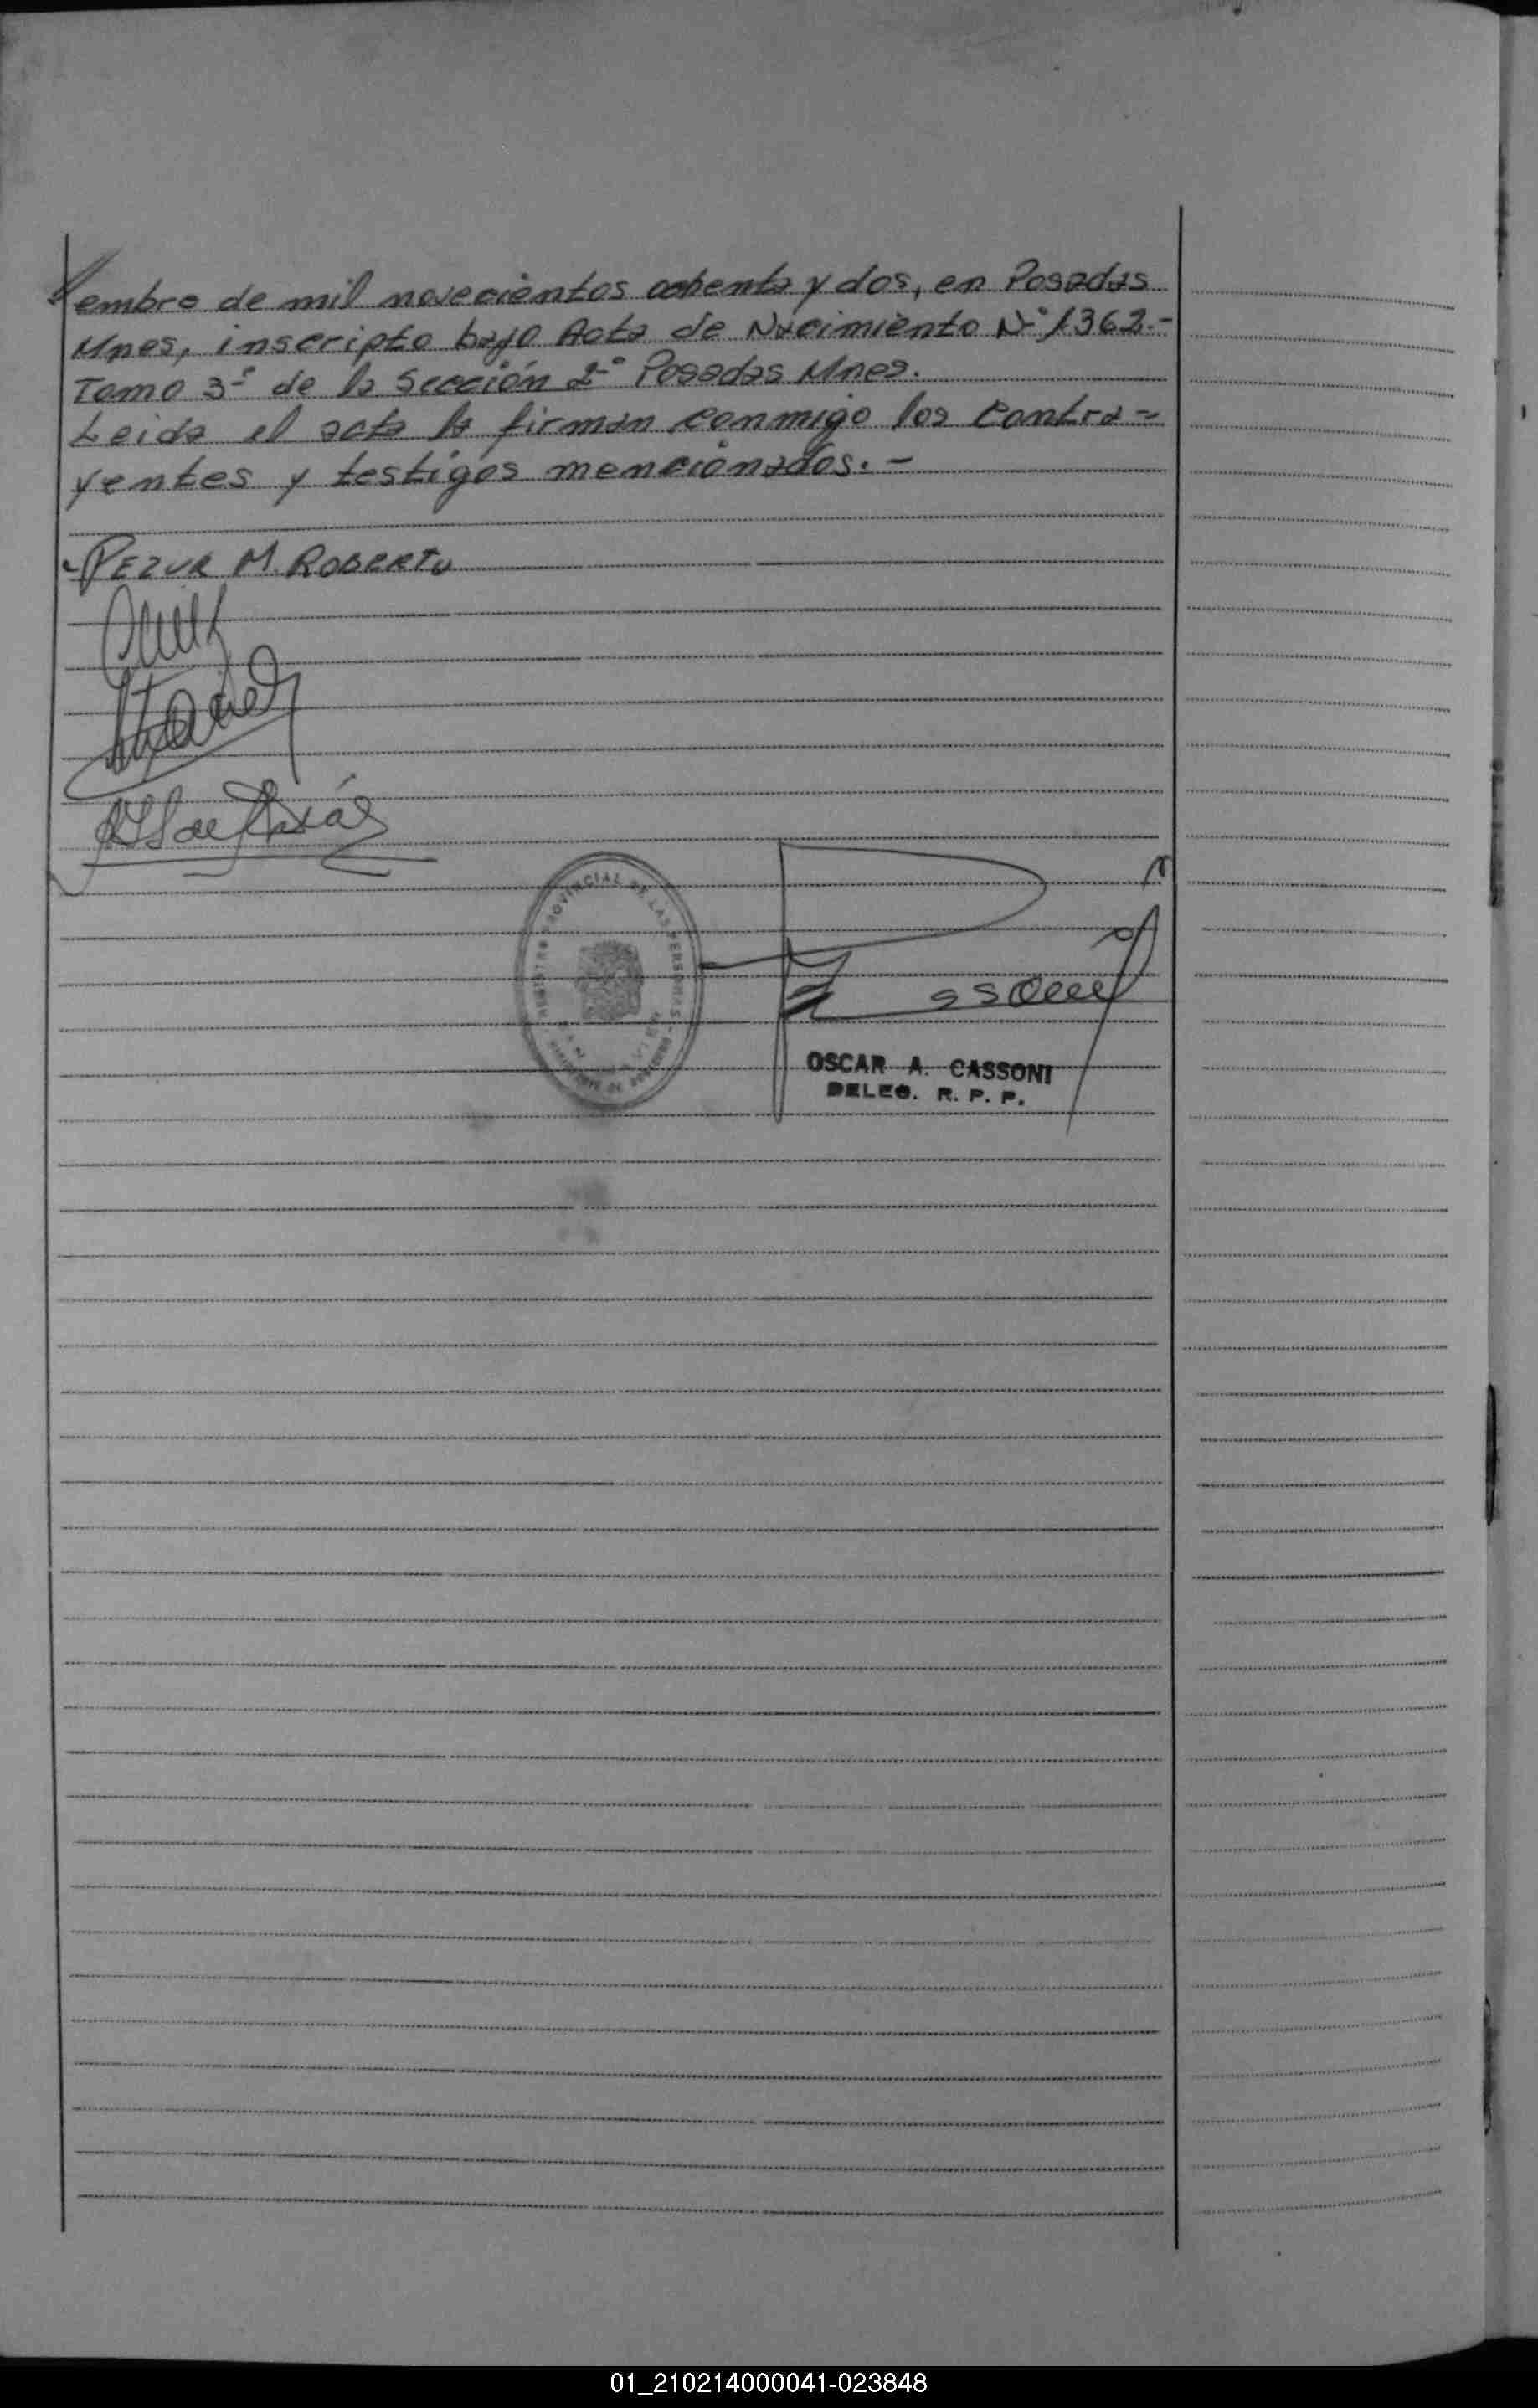 embre de mil novecientos ochenta y dos, en Posadas
Mnes, inscripto bajo Acta de Nacimiento Nº 1362.-
Tomo 3º de la Sección 2º Posadas Mnes.
Leida el acta la firman conmigo los contra-
yentes y testigos mencionados.-
PEZUR M. ROBERTO
REGISTRO PROVINCIAL DE LAS PERSONAS
OSCAR A. CASSONI
DELEG. R. P. P.
01_210214000041-023848